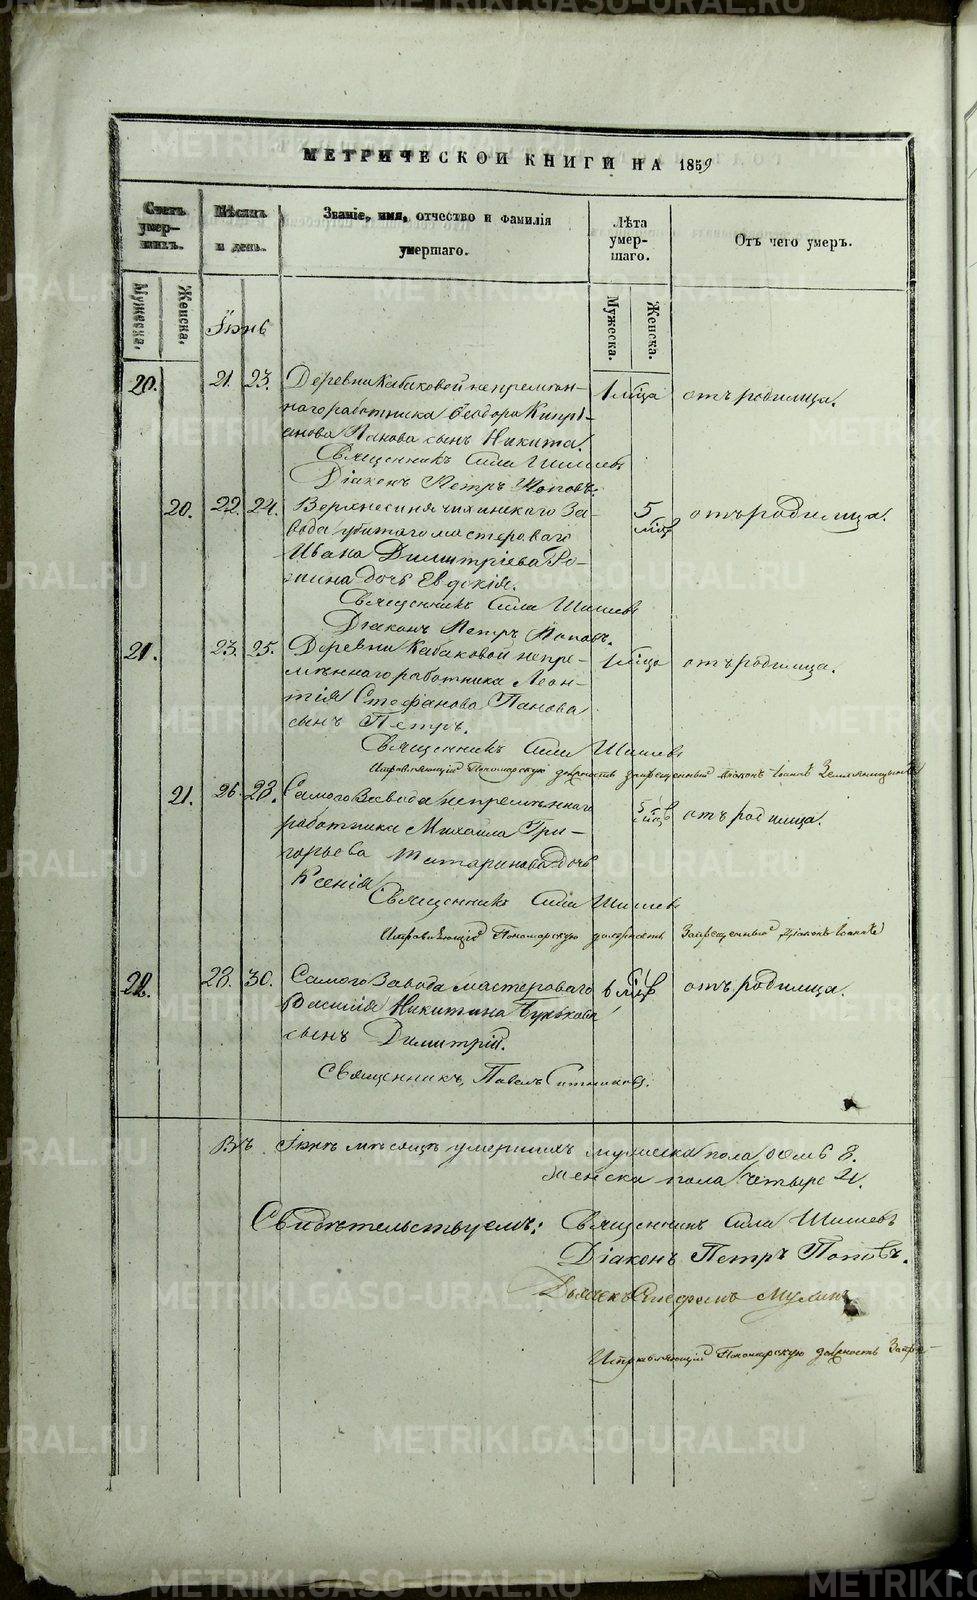 МЕТРИЧЕСКОЙ КНИГИ НА 1859
Счетъ умер-шихъ.
Мѣсяцъ и день.
Званіе, имя, отчество и фамилія умершаго.
Лѣта умер-шаго.
Отъ чего умеръ.
Мужеска.
Женска.
Мужеска.
Женска.
Іюнь
20. 21. 23. Деревни Кабаковой непремѣн- 1 мѣсяца отъ родимца.
наго работника Ѳеодора Кипрі-
анова Панова сынъ Никита.
Священникъ Сила Шишевъ
Діаконъ Петръ Поповъ.
20. 22. 24. Верхнесинячихинскаго За- 5 мѣс. отъ родимца.
вода убитаго мастероваго
Ивана Димитріева
дочь Евдокія.
Священникъ Сила Шишевъ
Діаконъ Петръ Поповъ.
21. 23. 25. Деревни Кабаковой непре- отъ родимца.
мѣннаго работника Леон-
тія Стефанова Панова
сынъ Петръ.
Священникъ Сила Шишевъ
Исправляющій Пономарскую должность запрещенный діаконъ Іоаннъ
21. 26. 28. Самого Завода непремѣннаго 5 мѣс. отъ родимца.
работника Михаила Гри-
горьева Татаринова дочь
Ксенія.
Священникъ Сила Шишевъ
Исправляющій Пономарскую должность Запрещенный Діаконъ Іоаннъ
22. 28. 30. Самого Завода мастероваго 6 мѣс. отъ родимца.
Василія Никитина
сынъ Димитрій.
Священникъ Павелъ Ситниковъ.
Въ Іюнѣ мѣсяцѣ умершихъ мужеска пола восемь 8.
женска пола четыре 4.
Свидѣтельствуемъ: Священникъ Сила Шишевъ
Діаконъ Петръ Поповъ.
Дьячекъ Стефанъ
Исправляющій Пономарскую должность Запре-
METRIKI.GASO-URAL.RU